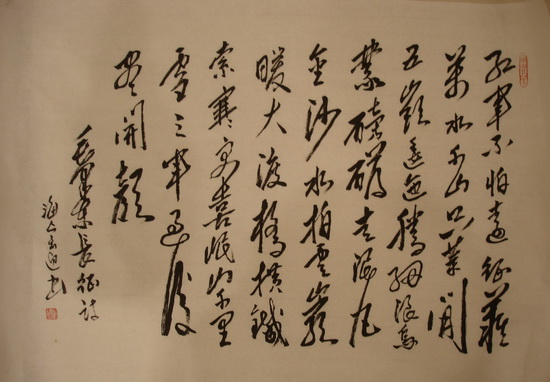 红軍不怕遠征難
萬水千山只等閒
五嶺逶迤騰細浪烏
蒙磅礴走泥丸
金沙水拍雲崖
暖大渡橋横鐵
索寒更喜岷山千里
雪三軍過後
尽開顔
毛澤東長征詩
書